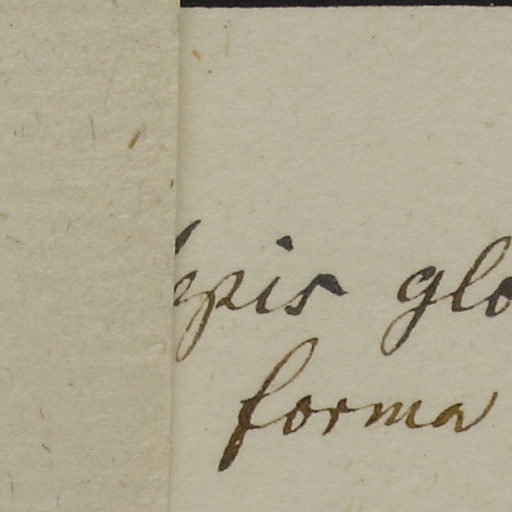 epis glo
forma